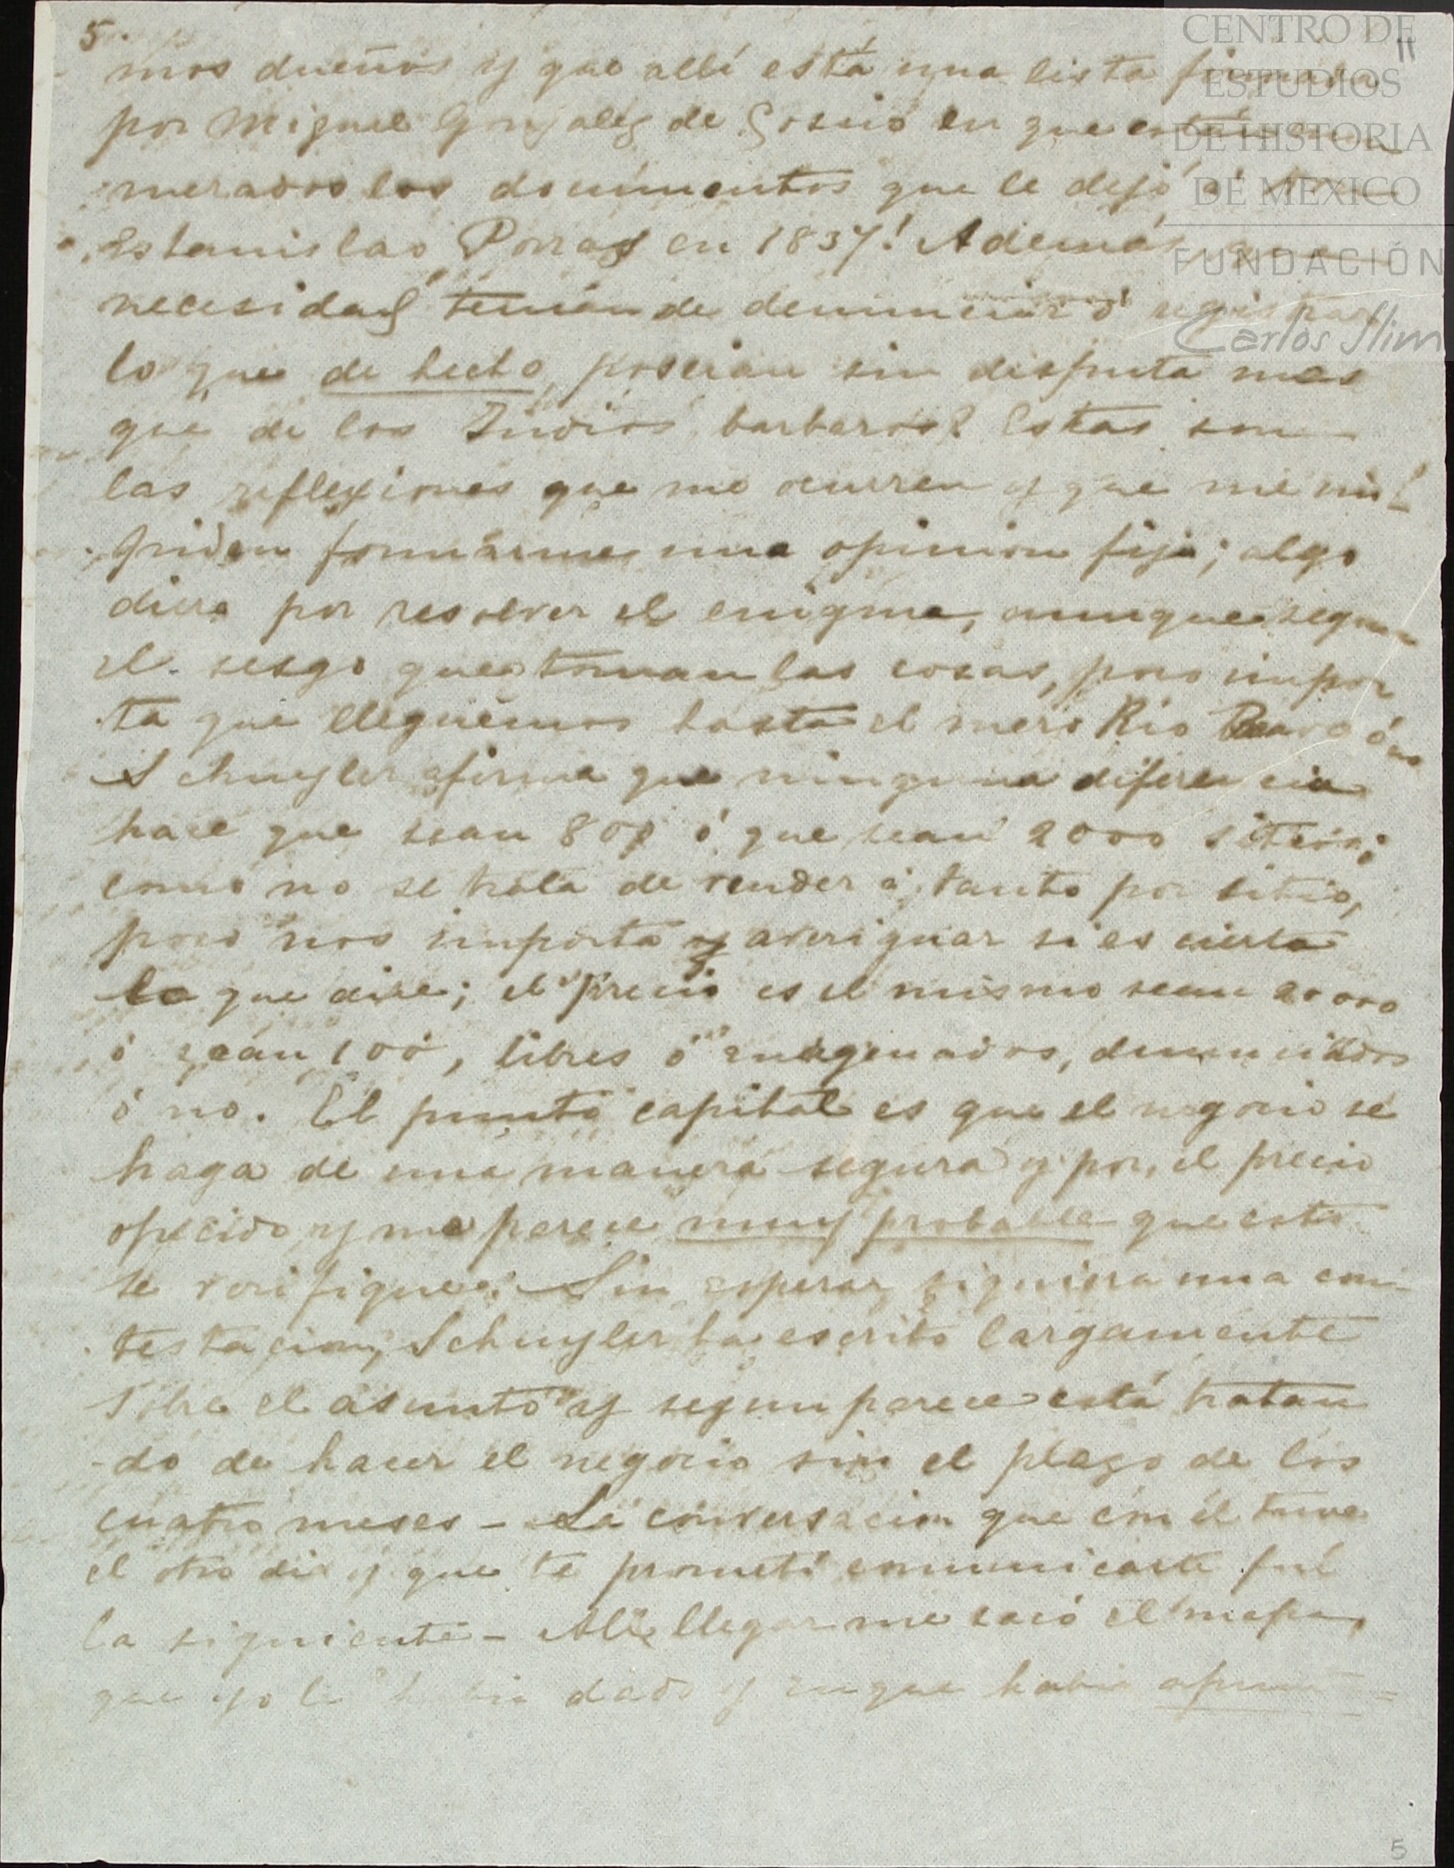 5.
CENTRO DE
ESTUDIOS
DE HISTORIA
DE MEXICO
FUNDACIÓN
Carlos Slim
11
mos dueños y que allí está una lista firmada
por Miguel Gonzalez de Cosio en que están enu
merados los documentos que le dejó á
Estanislao Porras en 1837! Además, que
necesidad tenían de denunciar ó registrar
lo que de hecho poseian sin disputa mas
que de los Indios barbaros? Estas son
las reflexiones que me ocurren y que me im
piden formarme una opinion fija; algo
diera por resolver el enigma, aunque segun
el sesgo que toman las cosas, poco impor
ta que lleguémos hasta el mero Rio Bravo ó no
Schuyler afirma que ninguna diferencia
hace que sean 800 ó que sean 2000 sitios;
como no se trata de vender á tanto por sitio,
poco nos importa averiguar si es cierto
lo que dice; el precio es el mismo sean 2000
ó sean 100, libres ó enagenados, denunciados
ó no. El punto capital es que el negocio se
haga de una manera segura y por el precio
ofrecido y me parece muy probable que esto
se verifique. Sin esperar siquiera una con-
testacion, Schuyler ha escrito largamente
sobre el asunto y segun parece está tratan
do de hacer el negocio sin el plazo de los
cuatro meses - La conversacion que con él tuve
el otro dia y que te prometí comunicarte fué
la siguiente - Al llegar me sacó el mapa,
que yo le habia dado y en que habia apunta=
5